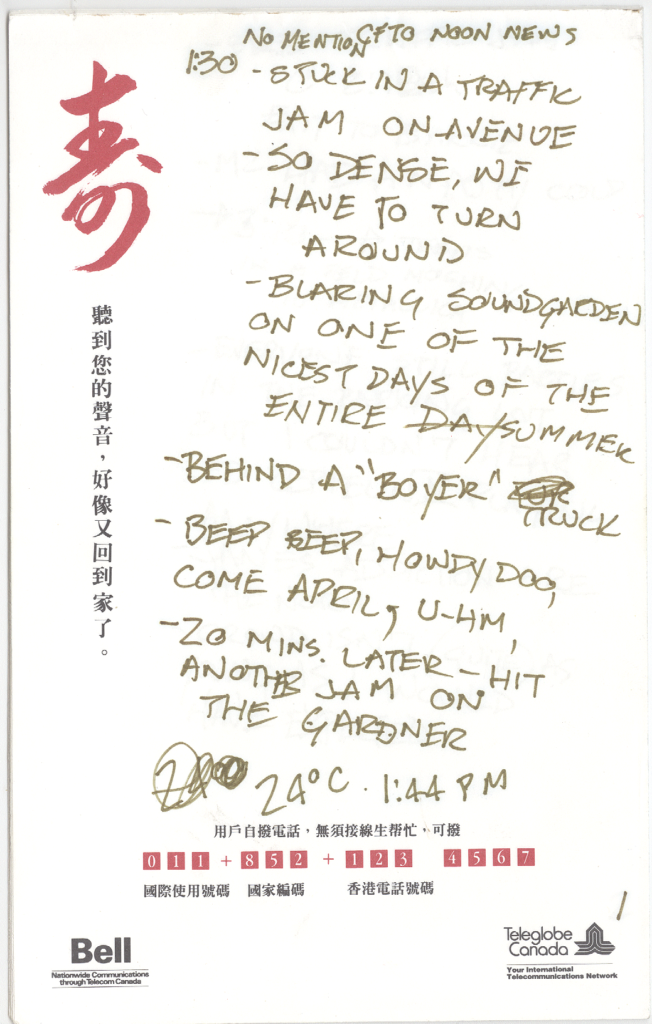 NO MENTION CFTO NOON NEWS
1:30 - STUCK IN A TRAFFIC
JAM ON AVENUE
- SO DENSE, WE
HAVE TO TURN
AROUND
- BLARING SOUNDGARDEN
ON ONE OF THE
NICEST DAYS OF THE
ENTIRE DAY SUMMER
- BEHIND A "BOYER" FOR
TRUCK
- BEEP BEEP, HOWDY DOO,
COME APRIL, U-HM,
- 20 MINS. LATER - HIT
ANOTHER JAM ON
THE GARDNER
24°C. 1:44 PM
壽
聽到您的聲音，好像又回到家了。
用戶自撥電話，無須接線生幫忙，可撥
011 + 852 + 123 4567
國際使用號碼 國家編碼 香港電話號碼
Bell
Nationwide Communications
through Telecom Canada
Teleglobe
Canada
Your International
Telecommunications Network